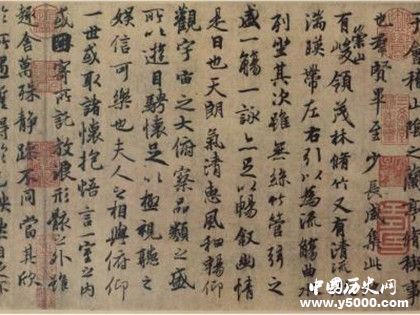 于會稽山陰之蘭亭脩稧事
也群賢畢至少長咸集此
有崇山峻領茂林脩竹又有清
湍暎帶左右引以為流觴曲水
列坐其次雖無絲竹管弦之
盛一觴一詠亦足以暢敘幽情
是日也天朗氣清惠風和暢仰
觀宇宙之大俯察品類之盛
所以遊目騁懷足以極視聽之
娛信可樂也夫人之相與俯仰
一世或取諸懷抱悟言一室之內
或因寄所託放浪形骸之外雖
趣舍萬殊靜躁不同當其欣
於所遇蹔得於己怏然自足不
中国历史网
www.y5000.com